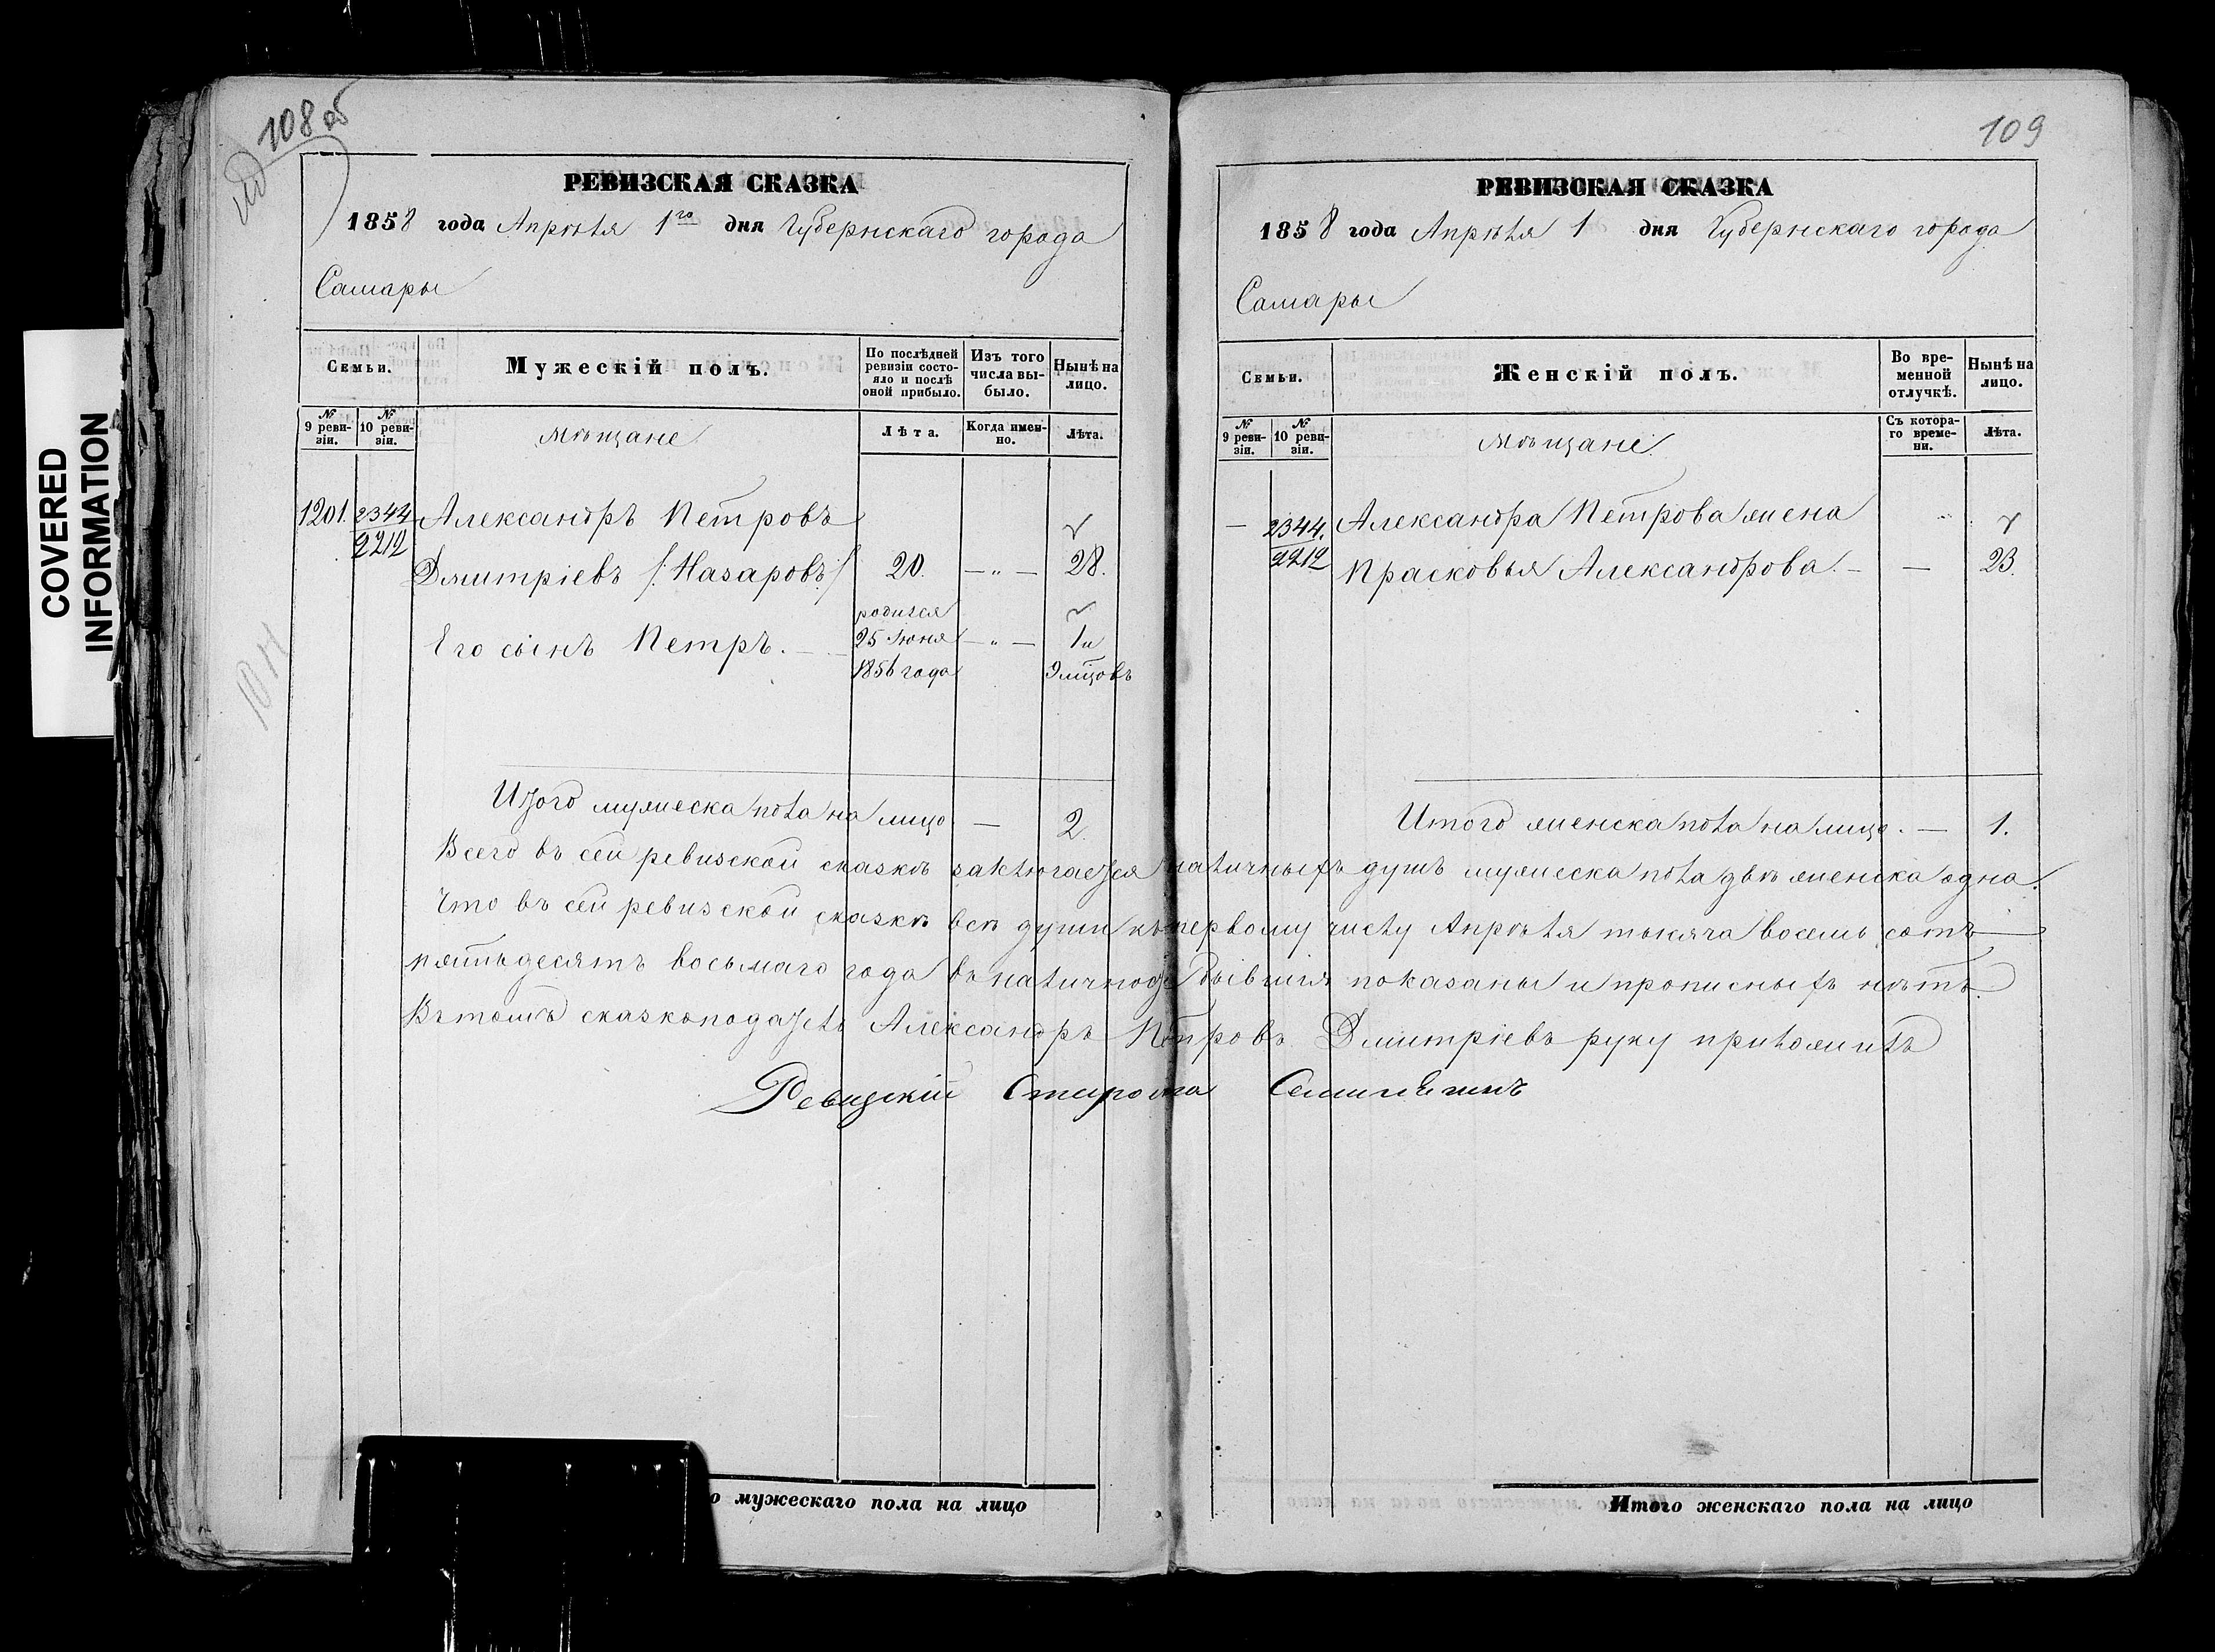 108 об
РЕВИЗСКАЯ СКАЗКА
1858 года Апрѣля 1го дня Губернскаго города
Самары
Семьи.
Мужескій полъ.
По послѣдней ревизіи состояло и послѣ оной прибыло.
Изъ того числа выбыло.
Нынѣ на лицо.
№ 9 ревизіи.
№ 10 ревизіи.
Мѣщане
Лѣта.
Когда именно.
Лѣта.
1201. 2344 Александръ Петровъ
2212
Дмитріевъ /:Назаровъ:/ 20. — „ — 28.
родился
Его сынъ Петръ. — 25 Июня — „ — 1 и
1856 года 9 мцовъ
Итого мужеска пола на лицо — 2.
109
РЕВИЗСКАЯ СКАЗКА
1858 года Апрѣля 1 дня Губернскаго города
Самары
Семьи.
Женскій полъ.
Во временной отлучкѣ.
Нынѣ на лицо.
№ 9 ревизіи.
№ 10 ревизіи.
Мѣщане
Съ котораго времени.
Лѣта.
— 2344. Александра Петрова жена
2212 Прасковья Александрова. — — 23.
Итого женска пола на лицо. — 1.
Всего въ сей ревизской сказкѣ заключается наличныхъ душъ мужеска пола двѣ женска одна.
Что въ сей ревизской сказкѣ всѣ души къ первому числу Апрѣля тысяча восемь сотъ
пятьдесятъ восьмаго года въ наличности бывшія показаны и прописныхъ нѣтъ.
Въ томъ сказкоподатель Александръ Петровъ Дмитріевъ руку приложилъ
Ревизскій Староста
о мужескаго пола на лицо
Итого женскаго пола на лицо
COVERED
INFORMATION